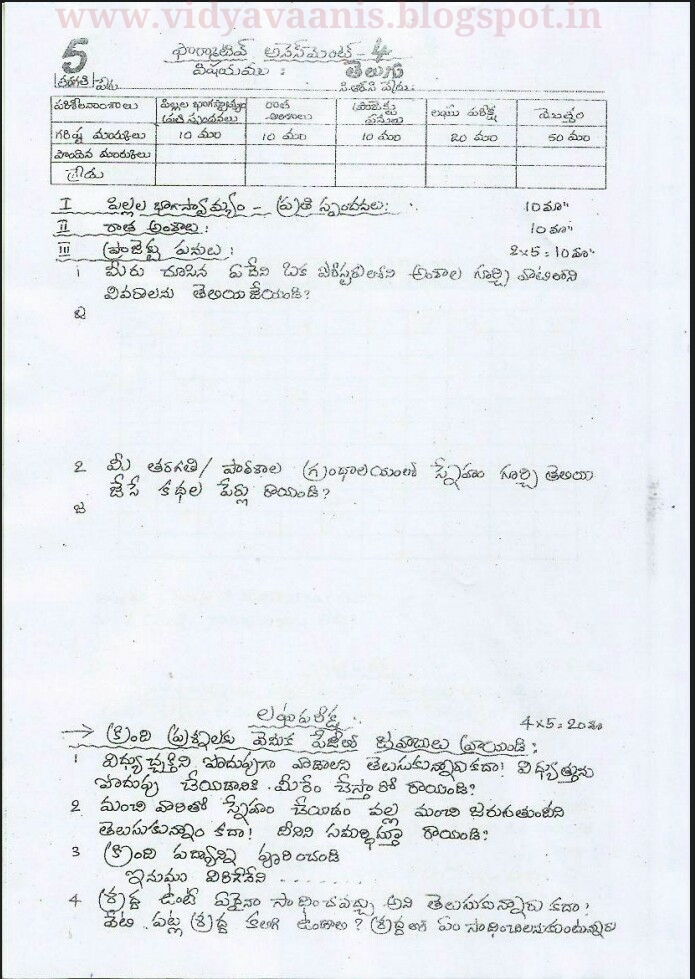 www.vidyavaanis.blogspot.in
5 ఫార్మాటివ్ అసెస్‌మెంట్ - 4
విషయము : తెలుగు
తరగతి పేరు సి.ఆర్.సి పేరు:
పరిశీలనాంశాలు పిల్లల భాగస్వామ్యం ప్రతి స్పందనలు రాత అంశాలు ప్రాజెక్టు పనులు లఘు పరీక్ష మొత్తం
గరిష్ఠ మార్కులు 10 మా 10 మా 10 మా 20 మా 50 మా
పొందిన మార్కులు
గ్రేడు
I పిల్లల భాగస్వామ్యం - ప్రతి స్పందనలు: 10 మా"
II రాత అంశాలు: 10 మా"
III ప్రాజెక్టు పనులు : 2x5=10 మా"
1 మీరు చూసిన ఏదేని ఒక అంశాల గూర్చి వాటిలోని
వివరాలను తెలియజేయండి?
జ
2 మీ తరగతి/ పాఠశాల గ్రంథాలయంలో స్నేహం గూర్చి తెలియ
జేసే కథల పేర్లు రాయండి?
జ
లఘుపరీక్ష 4x5=20 మా
→ క్రింది ప్రశ్నలకు వెనుక పేజీలో జవాబులు వ్రాయండి :
1 విద్యుచ్ఛక్తిని పొదుపుగా వాడాలని తెలుసుకున్నారు కదా! విద్యుత్తును
పొదుపు చేయడానికి మీరేం చేస్తారో రాయండి?
2 మంచి వారితో స్నేహం చేయడం వల్ల మంచి జరుగుతుందని
తెలుసుకున్నాం కదా! దీనిని సమర్థిస్తూ రాయండి?
3 క్రింది పద్యాన్ని పూరించండి
ఇనుము విరిగెనేని . . . . . . . .
4 శ్రద్ధ ఉంటే ఏదైనా సాధించవచ్చు అని తెలుసుకున్నారు కదా!
వేటి పట్ల శ్రద్ధ కలిగి ఉండాలి? శ్రద్ధతో ఏం సాధించాలనుకుంటున్నారు